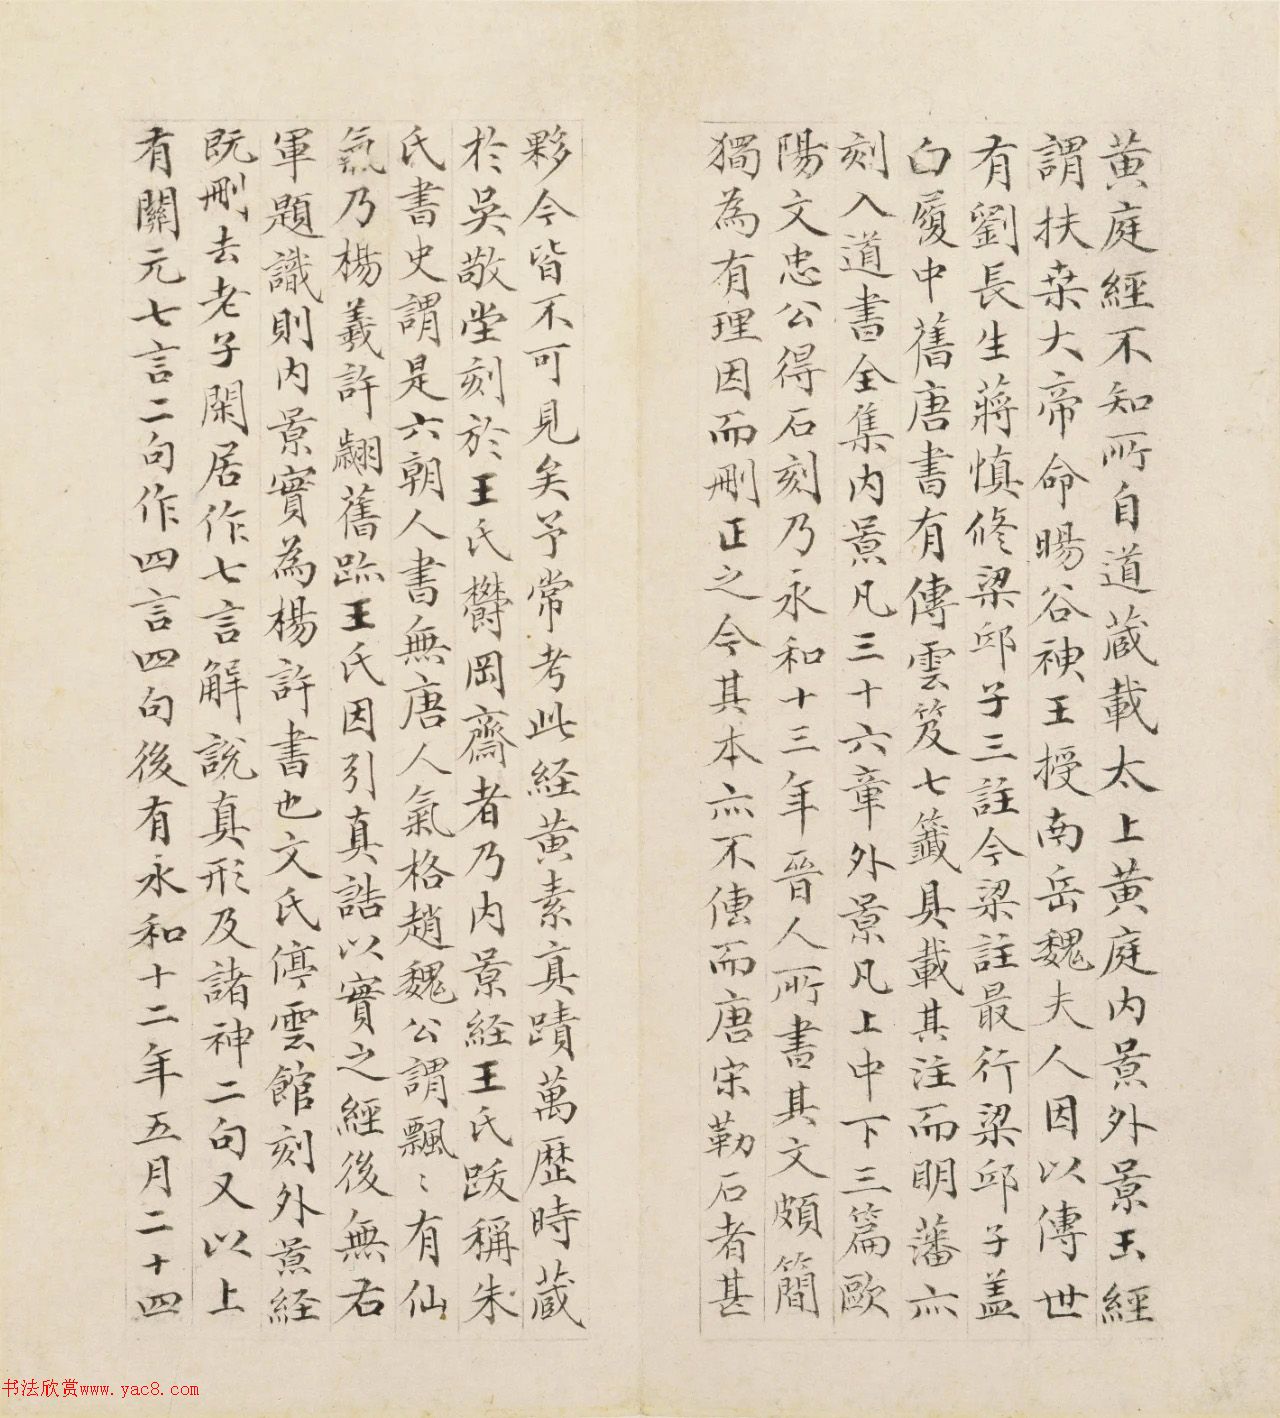 黄庭經不知所自道蔵載太上黄庭内景外景玉經
謂扶桒大帝命暘谷神王授南岳魏夫人因以傳世
有劉長生蔣慎修梁邱子三註今梁註最行梁邱子盖
白履中舊唐書有傳雲笈七籤具載其注而明藩亦
刻入道書全集内景凡三十六章外景凡上中下三篇歐
陽文忠公得石刻乃永和十三年晉人所書其文頗簡
獨為有理因而刪正之今其本亦不傳而唐宋勒石者甚
夥今皆不可見矣予常考此経黄素真蹟萬歷時蔵
於吳敬堂刻於王氏欎岡齋者乃内景経王氏跋稱朱
氏書史謂是六朝人書無唐人氣格趙魏公謂飄〻有仙
氣乃楊羲許翽舊跡王氏因引真誥以實之經後無右
軍題識則内景實為楊許書也文氏停雲館刻外景経
既刪去老子閑居作七言解説真形及諸神二句又以上
有關元七言二句作四言四句後有永和十二年五月二十四
书法欣赏www.yac8.com